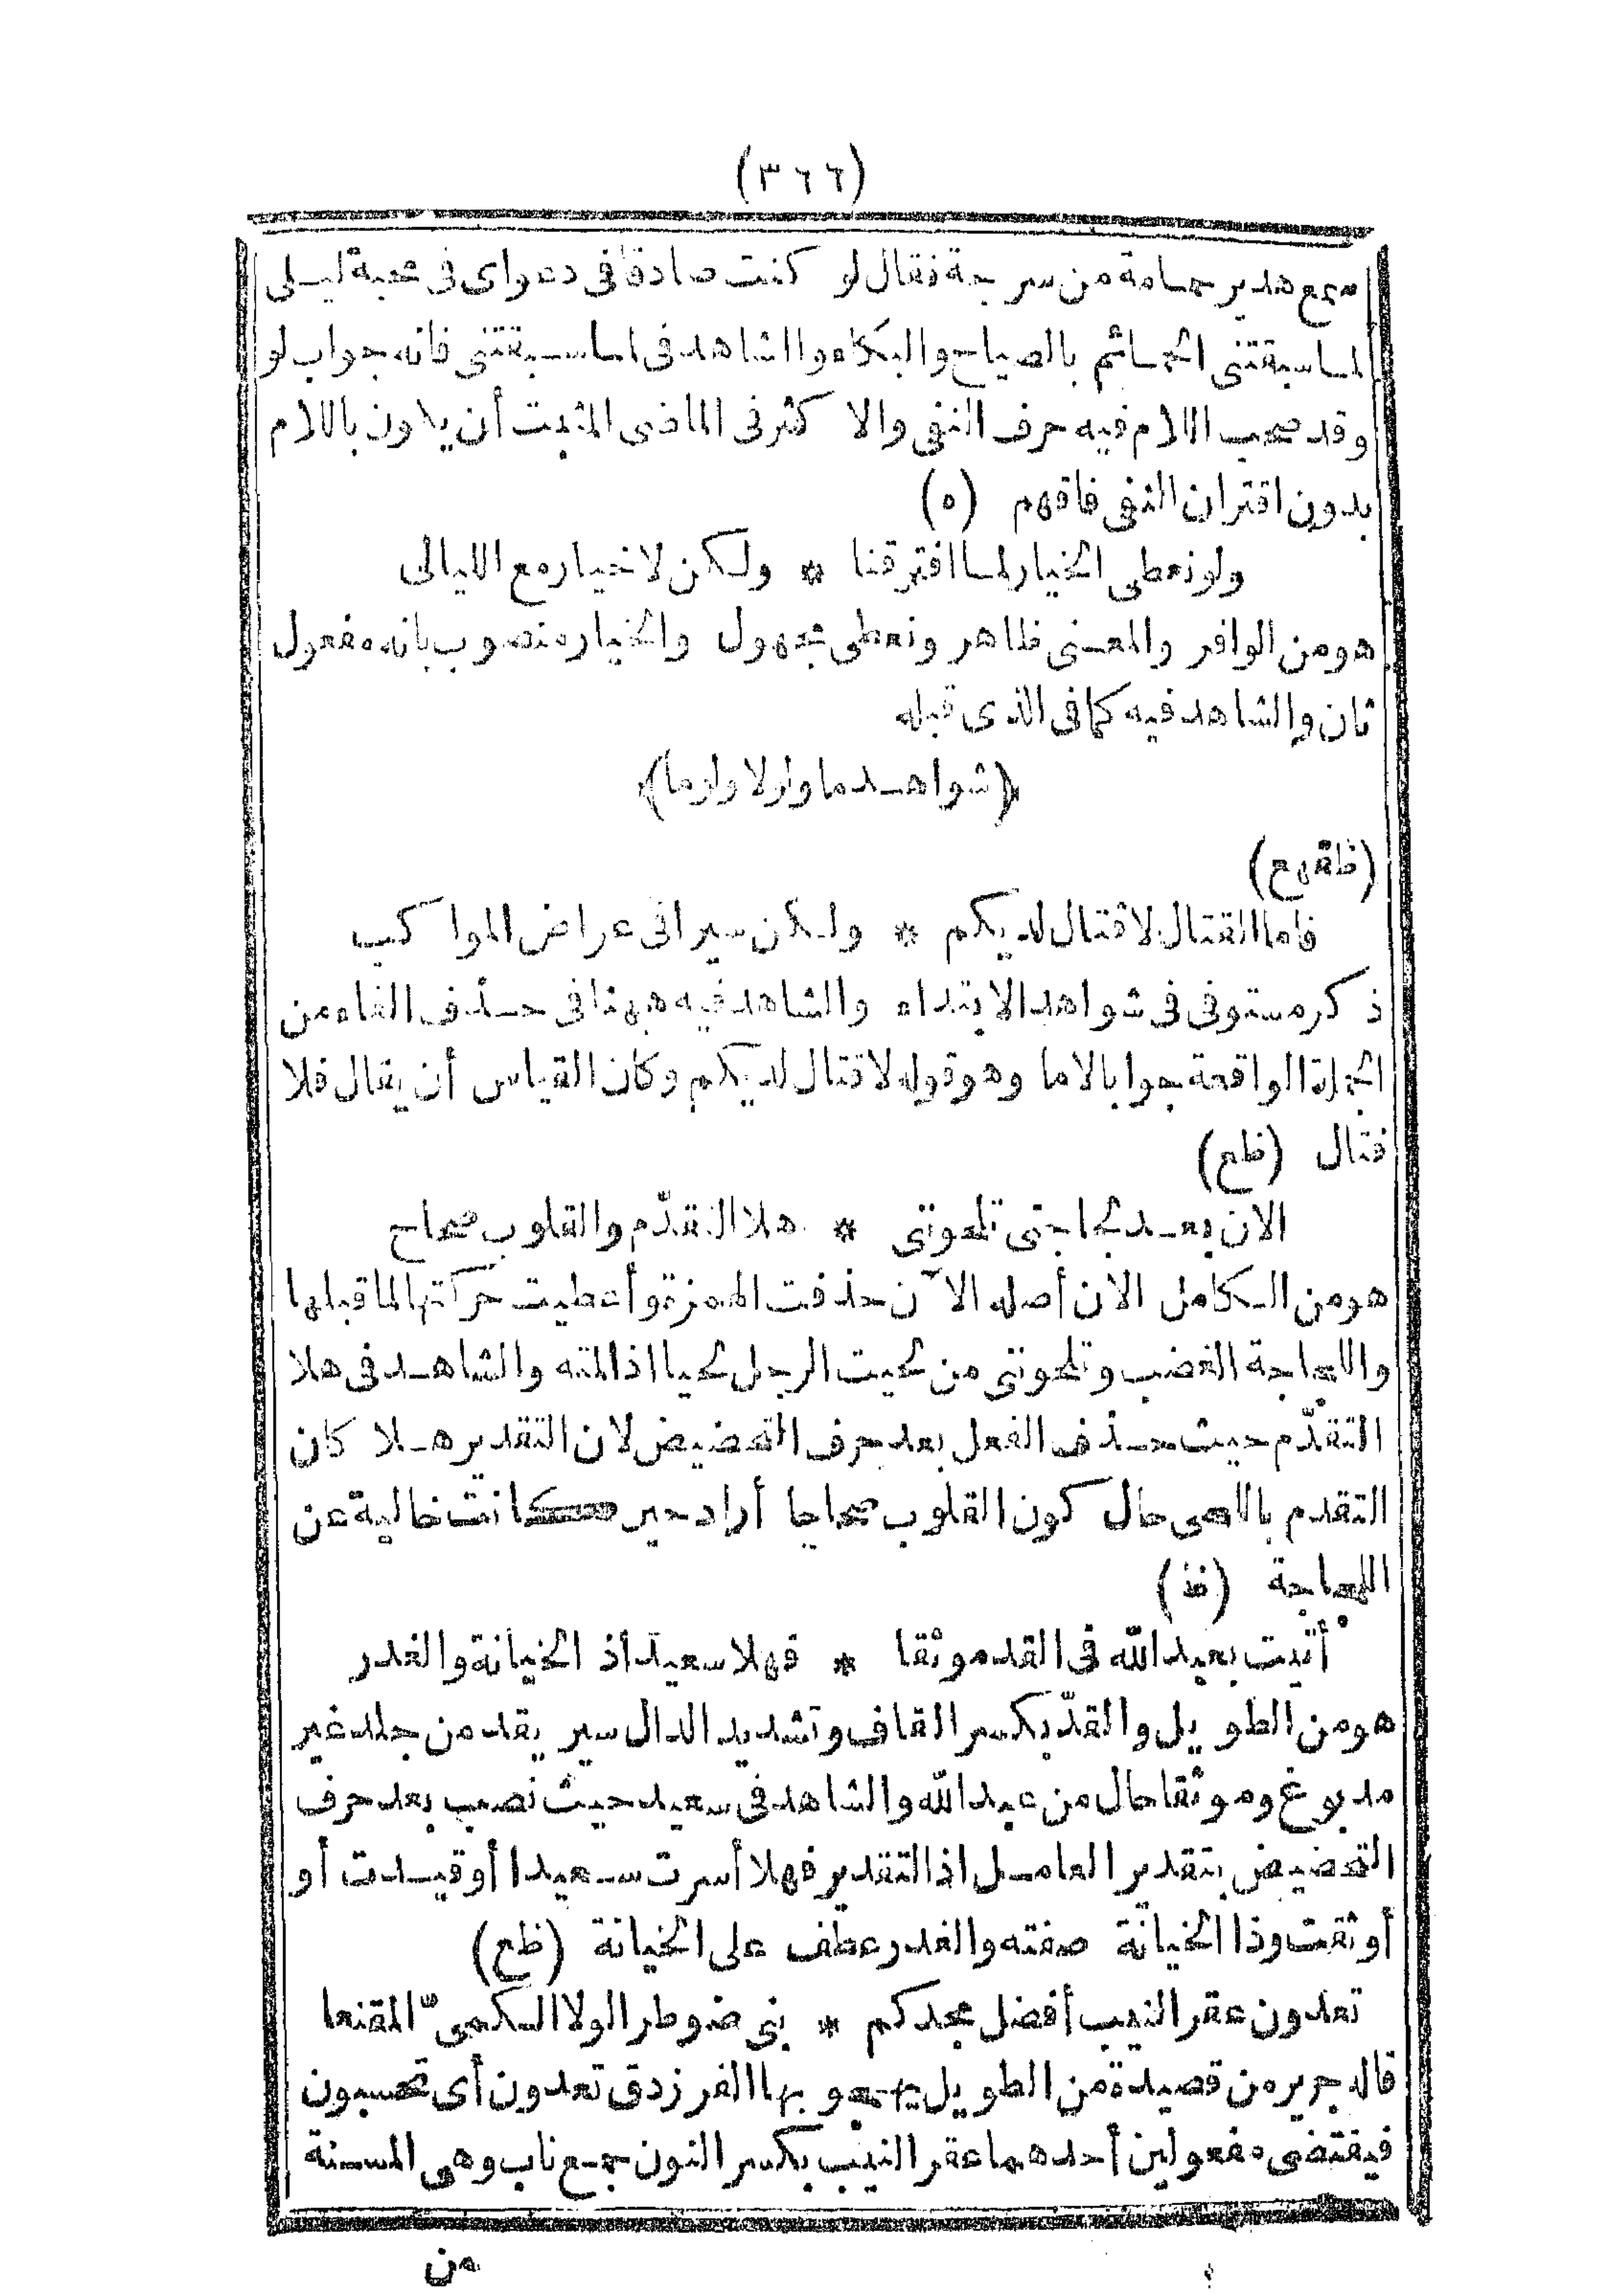 (٣٦٦)
سمع هدير حمامة من سرحة فقال لو كنت صادقا فى دعواى فى محبة ليلى
لما سبقتنى الحمائم بالصياح والبكاء والشاهد فى لما سبقتنى فانه جواب لو
وقد صحب اللام فيه حرف النفى والا كثر فى الماضى المثبت أن يكون باللام
بدون اقتران النفى فافهم (ه)
ولو نعطى الخيار لما افترقنا * ولكن لا خيار مع الليالى
هو من الوافر والمعنى ظاهر ونعطى مجهول والخيار منصوب بانه مفعول
ثان والشاهد فيه كما فى الذى قبله
(شواهد ما ولولا ولوما)
(ظقهع)
فاما القتال لا قتال لديكم * ولكن سيرا فى عراض المواكب
ذكر مستوفى فى شواهد الابتداء والشاهد فيه ههنا فى حذف الفاء من
الجملة الواقعة جوابا لاما وهو قوله لا قتال لديكم وكان القياس أن يقال فلا
قتال (ظع)
الان بعد لجاجتى تلحوننى * هلا التقدّم والقلوب صحاح
هو من الكامل الان أصله الآن حذفت الهمزة وأعطيت حركتها لما قبلها
واللجاجة الغضب وتلحوننى من لحيت الرجل لحيا اذا لمته والشاهد فى هلا
التقدّم حيث حذف الفعل بعد حرف التحضيض لان التقدير هلا كان
التقدم باللحى حال كون القلوب صحاحا أراد حين كانت خالية عن
اللجاجة (فذ)
أتيت بعبد الله فى القد موثقا * فهلا سعيدا ذا الخيانة والغدر
هو من الطويل والقدّ بكسر القاف وتشديد الدال سير يقد من جلد غير
مدبوغ وموثقا حال من عبد الله والشاهد فى سعيد حيث نصب بعد حرف
التحضيض بتقدير العامل اذ التقدير فهلا أسرت سعيدا أو قيدت أو
أوثقت وذا الخيانة صفته والغدر عطف على الخيانة (ظع)
تعدون عقر النيب أفضل مجدكم * بنى ضوطرا لولا الكمىّ المقنعا
قاله جرير من قصيدة من الطويل يهجو بها الفرزدق تعدون أى تحسبون
فيقتضى مفعولين أحدهما عقر النيب بكسر النون جمع ناب وهى المسنة
من